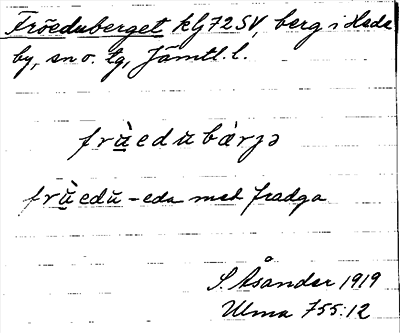 Fröeduberget kG72SV, berg i Hede
by, sn o. tg, Jämtl. l.
frùedŭbàrjə
frùedŭ - eda med fradga
S. Åsander 1919
Ulma 755:12